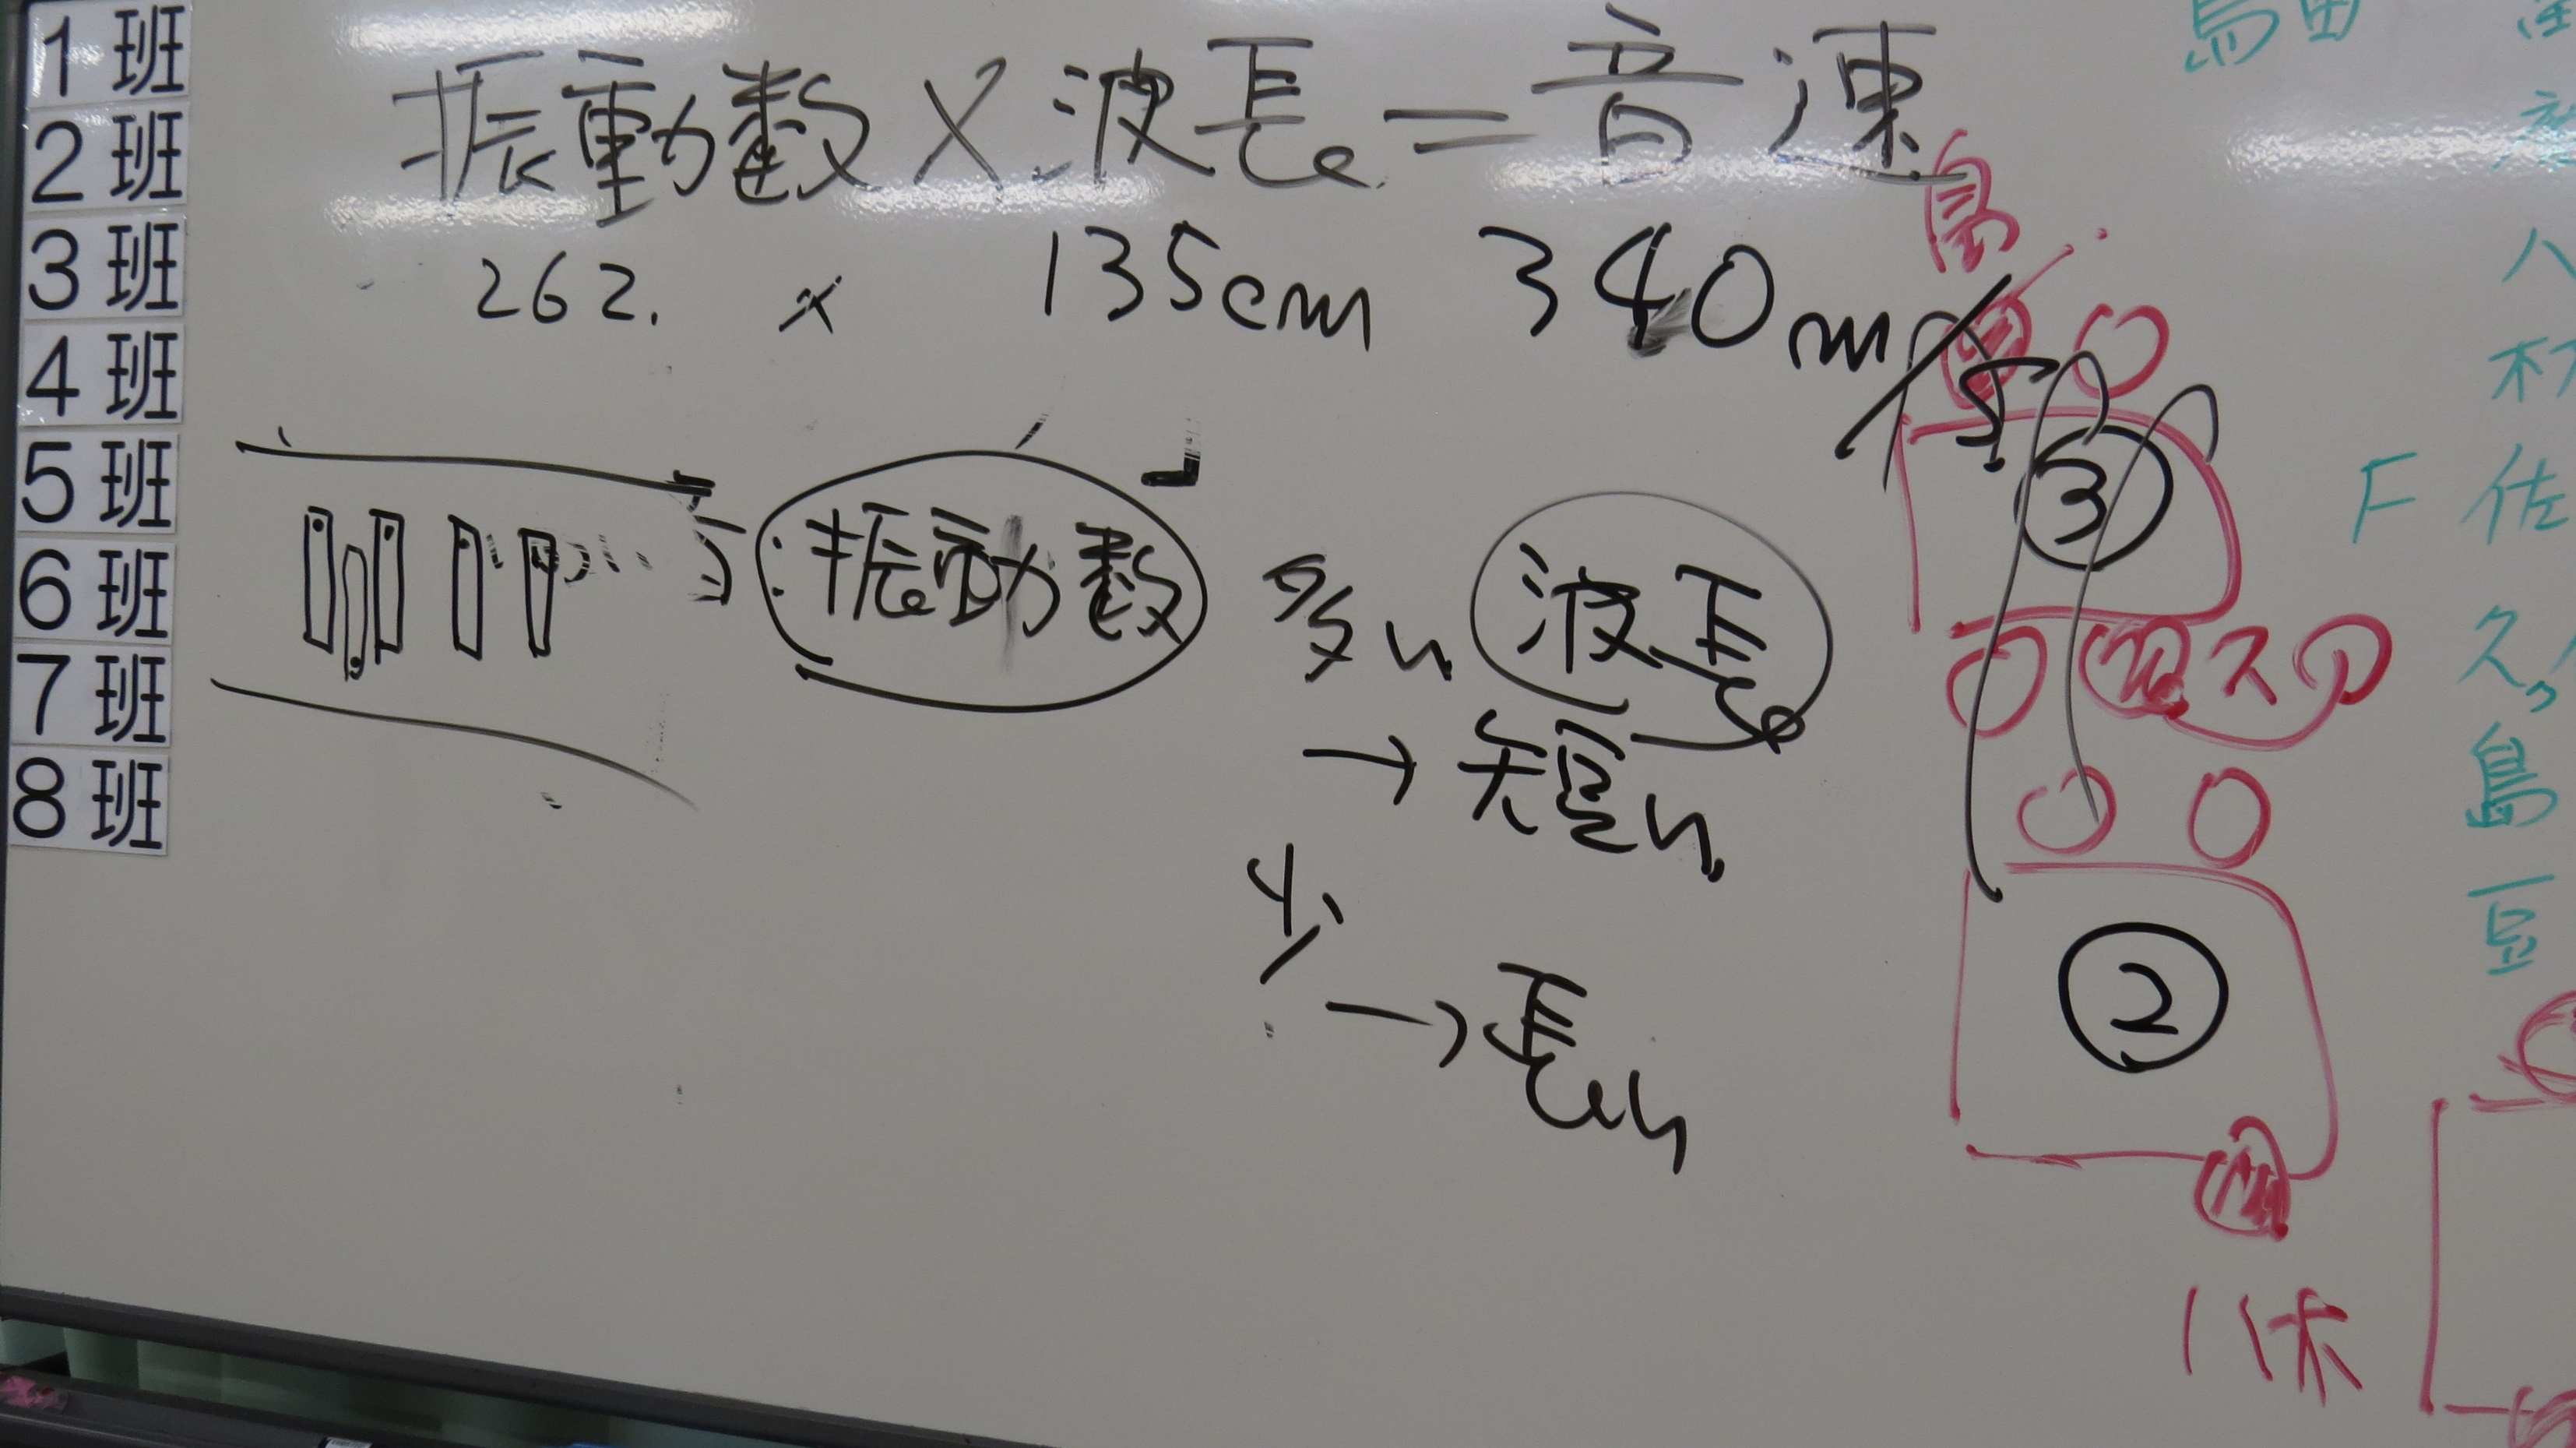 1班
2班
3班
4班
5班
6班
7班
8班
振動数×波長=音速
262. × 135cm 340m/s
振動数 多い 波長
→短い
少
→長い
島
③
ス
②
島田
八
F 佐
久
島
豆